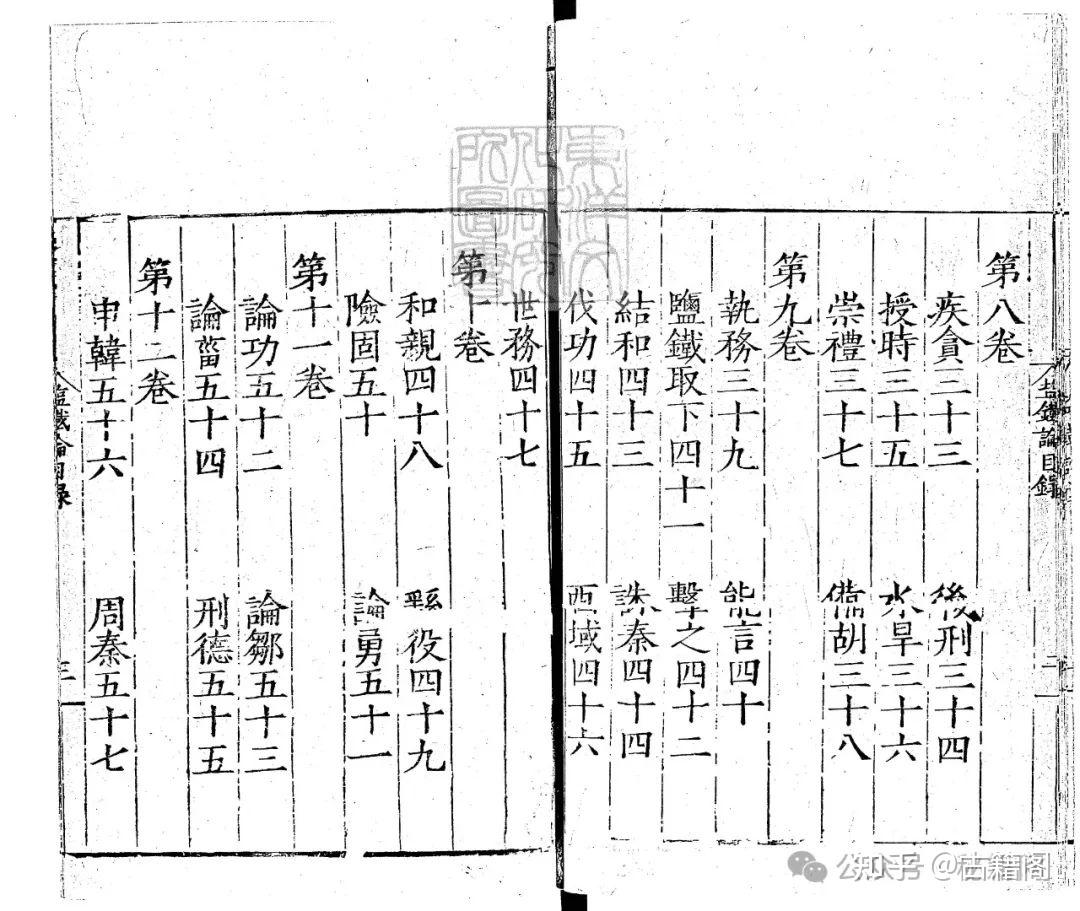 盐鐵論目錄
二
第八卷
疾貪三十三 後刑三十四
授時三十五 水旱三十六
崇禮三十七 備胡三十八
第九卷
執務三十九 能言四十
鹽鐵取下四十一 擊之四十二
結和四十三 誅秦四十四
伐功四十五 西域四十六
世務四十七
第十卷
和親四十八 繇役四十九
險固五十 論勇五十一
第十一卷
論功五十二 論鄒五十三
論菑五十四 刑德五十五
第十二卷
申韓五十六 周秦五十七
三
知乎 @古籍阁